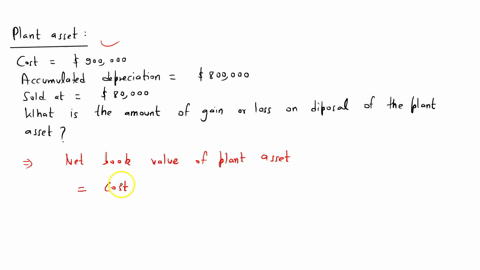 Plant asset :
Cost = $ 900,000
Accumulated depreciation = $ 800,000
Sold at = $ 80,000
What is the amount of gain or loss on diposal of the plant
asset ?
⇒ Net book value of plant asset
= Cost